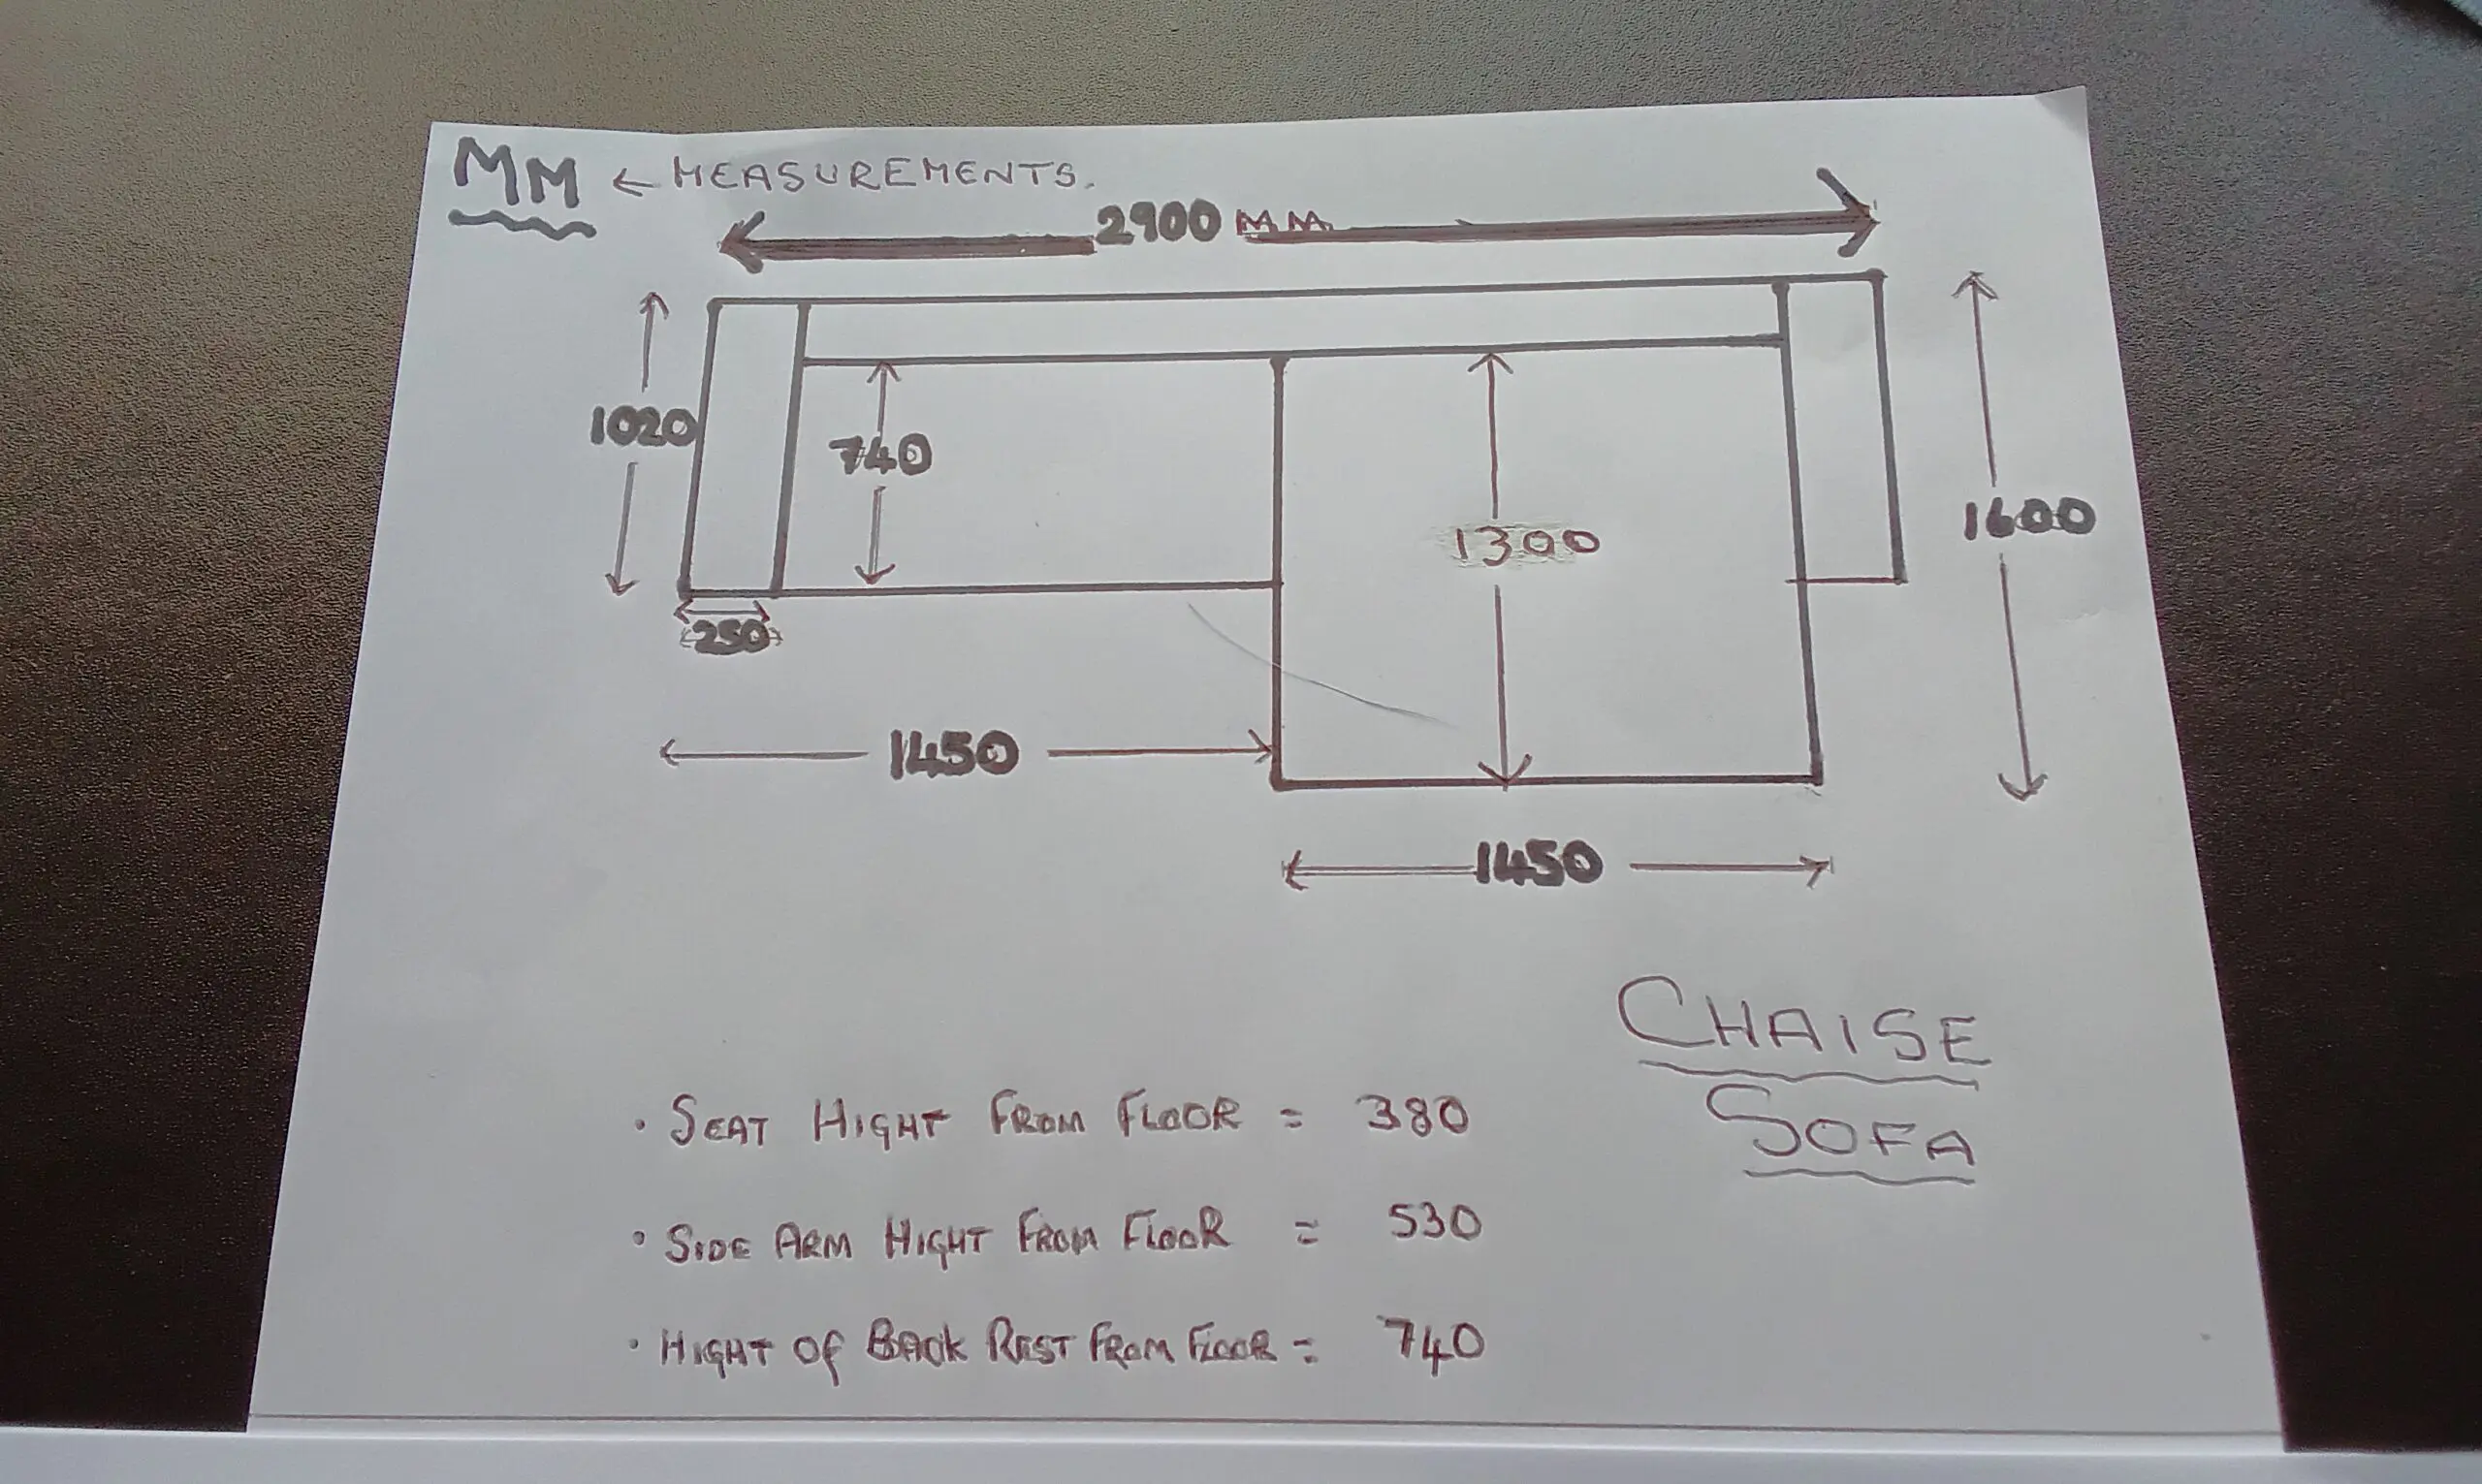 MM ← MEASUREMENTS.
2900 MM
1020
740
1300
1600
250
1450
1450
CHAISE
SOFA
• SEAT HIGHT FROM FLOOR = 380
• SIDE ARM HIGHT FROM FLOOR = 530
• HIGHT OF BACK REST FROM FLOOR = 740